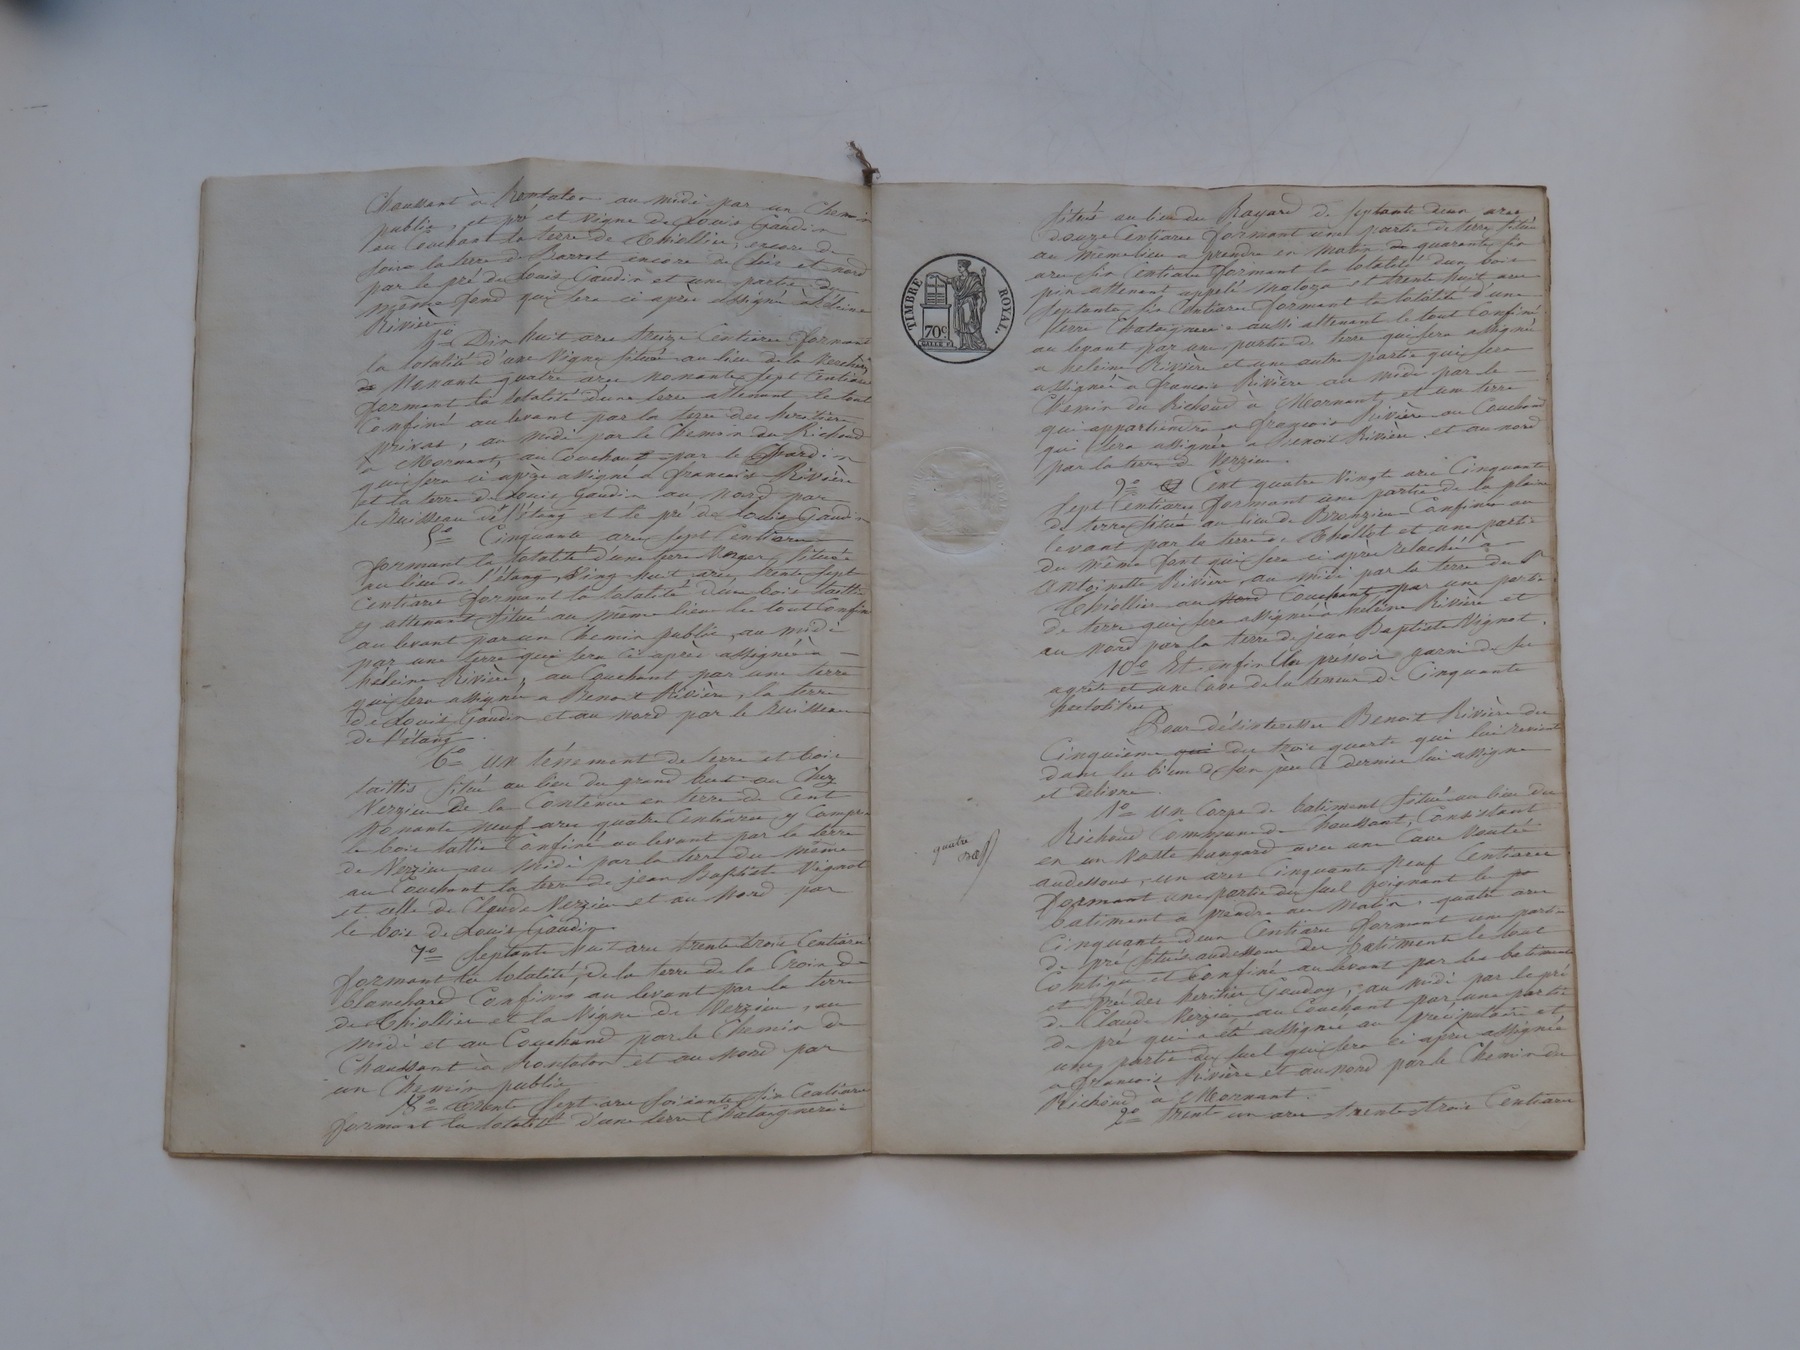 Chaussant à Rontalon au midi par un Chemin
public, et pré et vigne de Louis Gaudin
au Couchant la terre de Thiollier, encore de
soir la terre de Barrot encore de et nord
par le pré de Louis Gaudin et une partie du
même fond qui sera ci après assigné à héleine
Rivière
4º Dix huit ares treize Centiares formant
la totalité d'une Vigne située au lieu de la
de Nonante quatre ares nonante sept Centiares
formant la totalité d'une terre attenant le tout
Confiné au levant par la terre des heritiers
privas, au midi par le Chemin du Richoud
à Mornant, au Couchant par le Jardin
qui sera ci après assigné a francois Rivière
et la terre de Louis Gaudin au Nord par
le Ruisseau de l'étang et le pré de Louis Gaudin
5º Cinquante ares sept Centiares
formant la totalité d'une terre Verger, située
au lieu de l'étang, Ving huit ares, trente sept
Centiares formant la totalité d'un bois taillis
y attenant situé au même lieu le tout Confiné
au levant par un Chemin public, au midi
par une terre qui sera ci après assignée à
héleine Rivière, au Couchant par une terre
qui sera assignée a Benoit Rivière, la terre
de Louis Gaudin et au nord par le Ruisseau
de l'étang.
6º Un ténement de terre et bois
taillis situé au lieu du grand but ou Chez
Verzieu de la Contenue en terre de Cent
Nonante neuf ares quatre Centiares y Compris
le bois taillis Confiné au levant par la terre
de Verzieu au Midi par la terre du même
au Couchant la terre de jean Baptiste Vignat
et celle de Claude Verzieu et au Nord par
le bois de Louis Gaudin
7º Septante huit ares trente trois Centiares
formant la totalité, de la terre de la Croix de
blanchard Confinée au levant par la terre
de Thiollier et la Vigne de Verzieu, au
midi et au Couchand par le Chemin de
Chaussant à Rontalont et au Nord par
un Chemin public
8º trente sept ares soixante six Centiares
formant la totalité d'une terre Chataigneraie
TIMBRE ROYAL.
70 c.
situés au lieu du Rayard de septante deux ares
douze Centiares formant une partie de terre située
au même lieu a prendre en matin de quarante six
ares six Centiares formant la totalité d'un bois
pin attenant appelé et trente huit ares
septante six Centiares formant la totalité d'une
terre Chataigneraie aussi attenant le tout Confiné
au levant par une partie de terre qui sera assignée
a heleine Rivière et une autre partie qui sera
assignée a francois Rivière au midi par le
Chemin du Richoud à Mornant et une terre
qui appartiendra a francois Rivière au Couchand
qui sera assignée a Benoit Rivière et au nord
par la terre de Verzieu.
9º Cent quatre Vingt ares Cinquante
sept Centiares formant une partie de la plaine
de terre située au lieu de Confinée au
levant par la terre de Thollot et une partie
du même font qui sera ci après relachée à
antoinette Rivière, au midi par la terre du S
Thiollier au Nord Couchant par une partie
de terre qui sera assignée à helène Rivière et
au Nord par la terre de jean Baptiste Vignat.
10º Et enfin les préssoir garni de ses
agrêts et une Cuve de la teneur de Cinquante
hectolitres.
Pour désinteresser Benoit Rivière du
Cinquième qui du trois quarts qui lui revient
dans les biens de son père ce dernier lui assigne
et delivre.
1º Un Corps de batiment situé au lieu du
Richoud Commune de Chaussant, Consistant
en un Vaste hangard avec une Cave Voutée
quatre
audessous, un ares Cinquante Neuf Centiares
formant une partie du suel joignant le
batiment a prendre au Matin, quatre ares
Cinquante deux Centiares formant une partie
de pré située audessous des batiments le tout
Contigu et Confiné au levant par les batiments
et pré des heritiers, au midi par le pré
de Claude Verzieu au Couchant par une partie
de pré qui a été assignée au précipataire et
une partie du suel qui sera ci après assignée
a francois Rivière et au nord par le Chemin du
Richoud à Mornant.
2º trente un ares trente trois Centiares